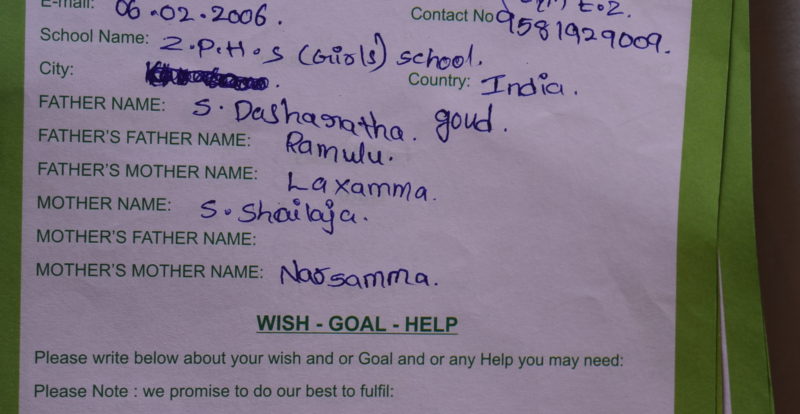 E-mail: 06.02.2006.
Contact No 9581929009.
School Name: Z.P.H.S (Girls) school.
City:
Country: India.
FATHER NAME: S. Dasharatha. goud.
FATHER'S FATHER NAME: Ramulu.
FATHER'S MOTHER NAME: Laxamma.
MOTHER NAME: S. Shailaja.
MOTHER'S FATHER NAME:
MOTHER'S MOTHER NAME: Narsamma.
WISH - GOAL - HELP
Please write below about your wish and or Goal and or any Help you may need:
Please Note : we promise to do our best to fulfil: